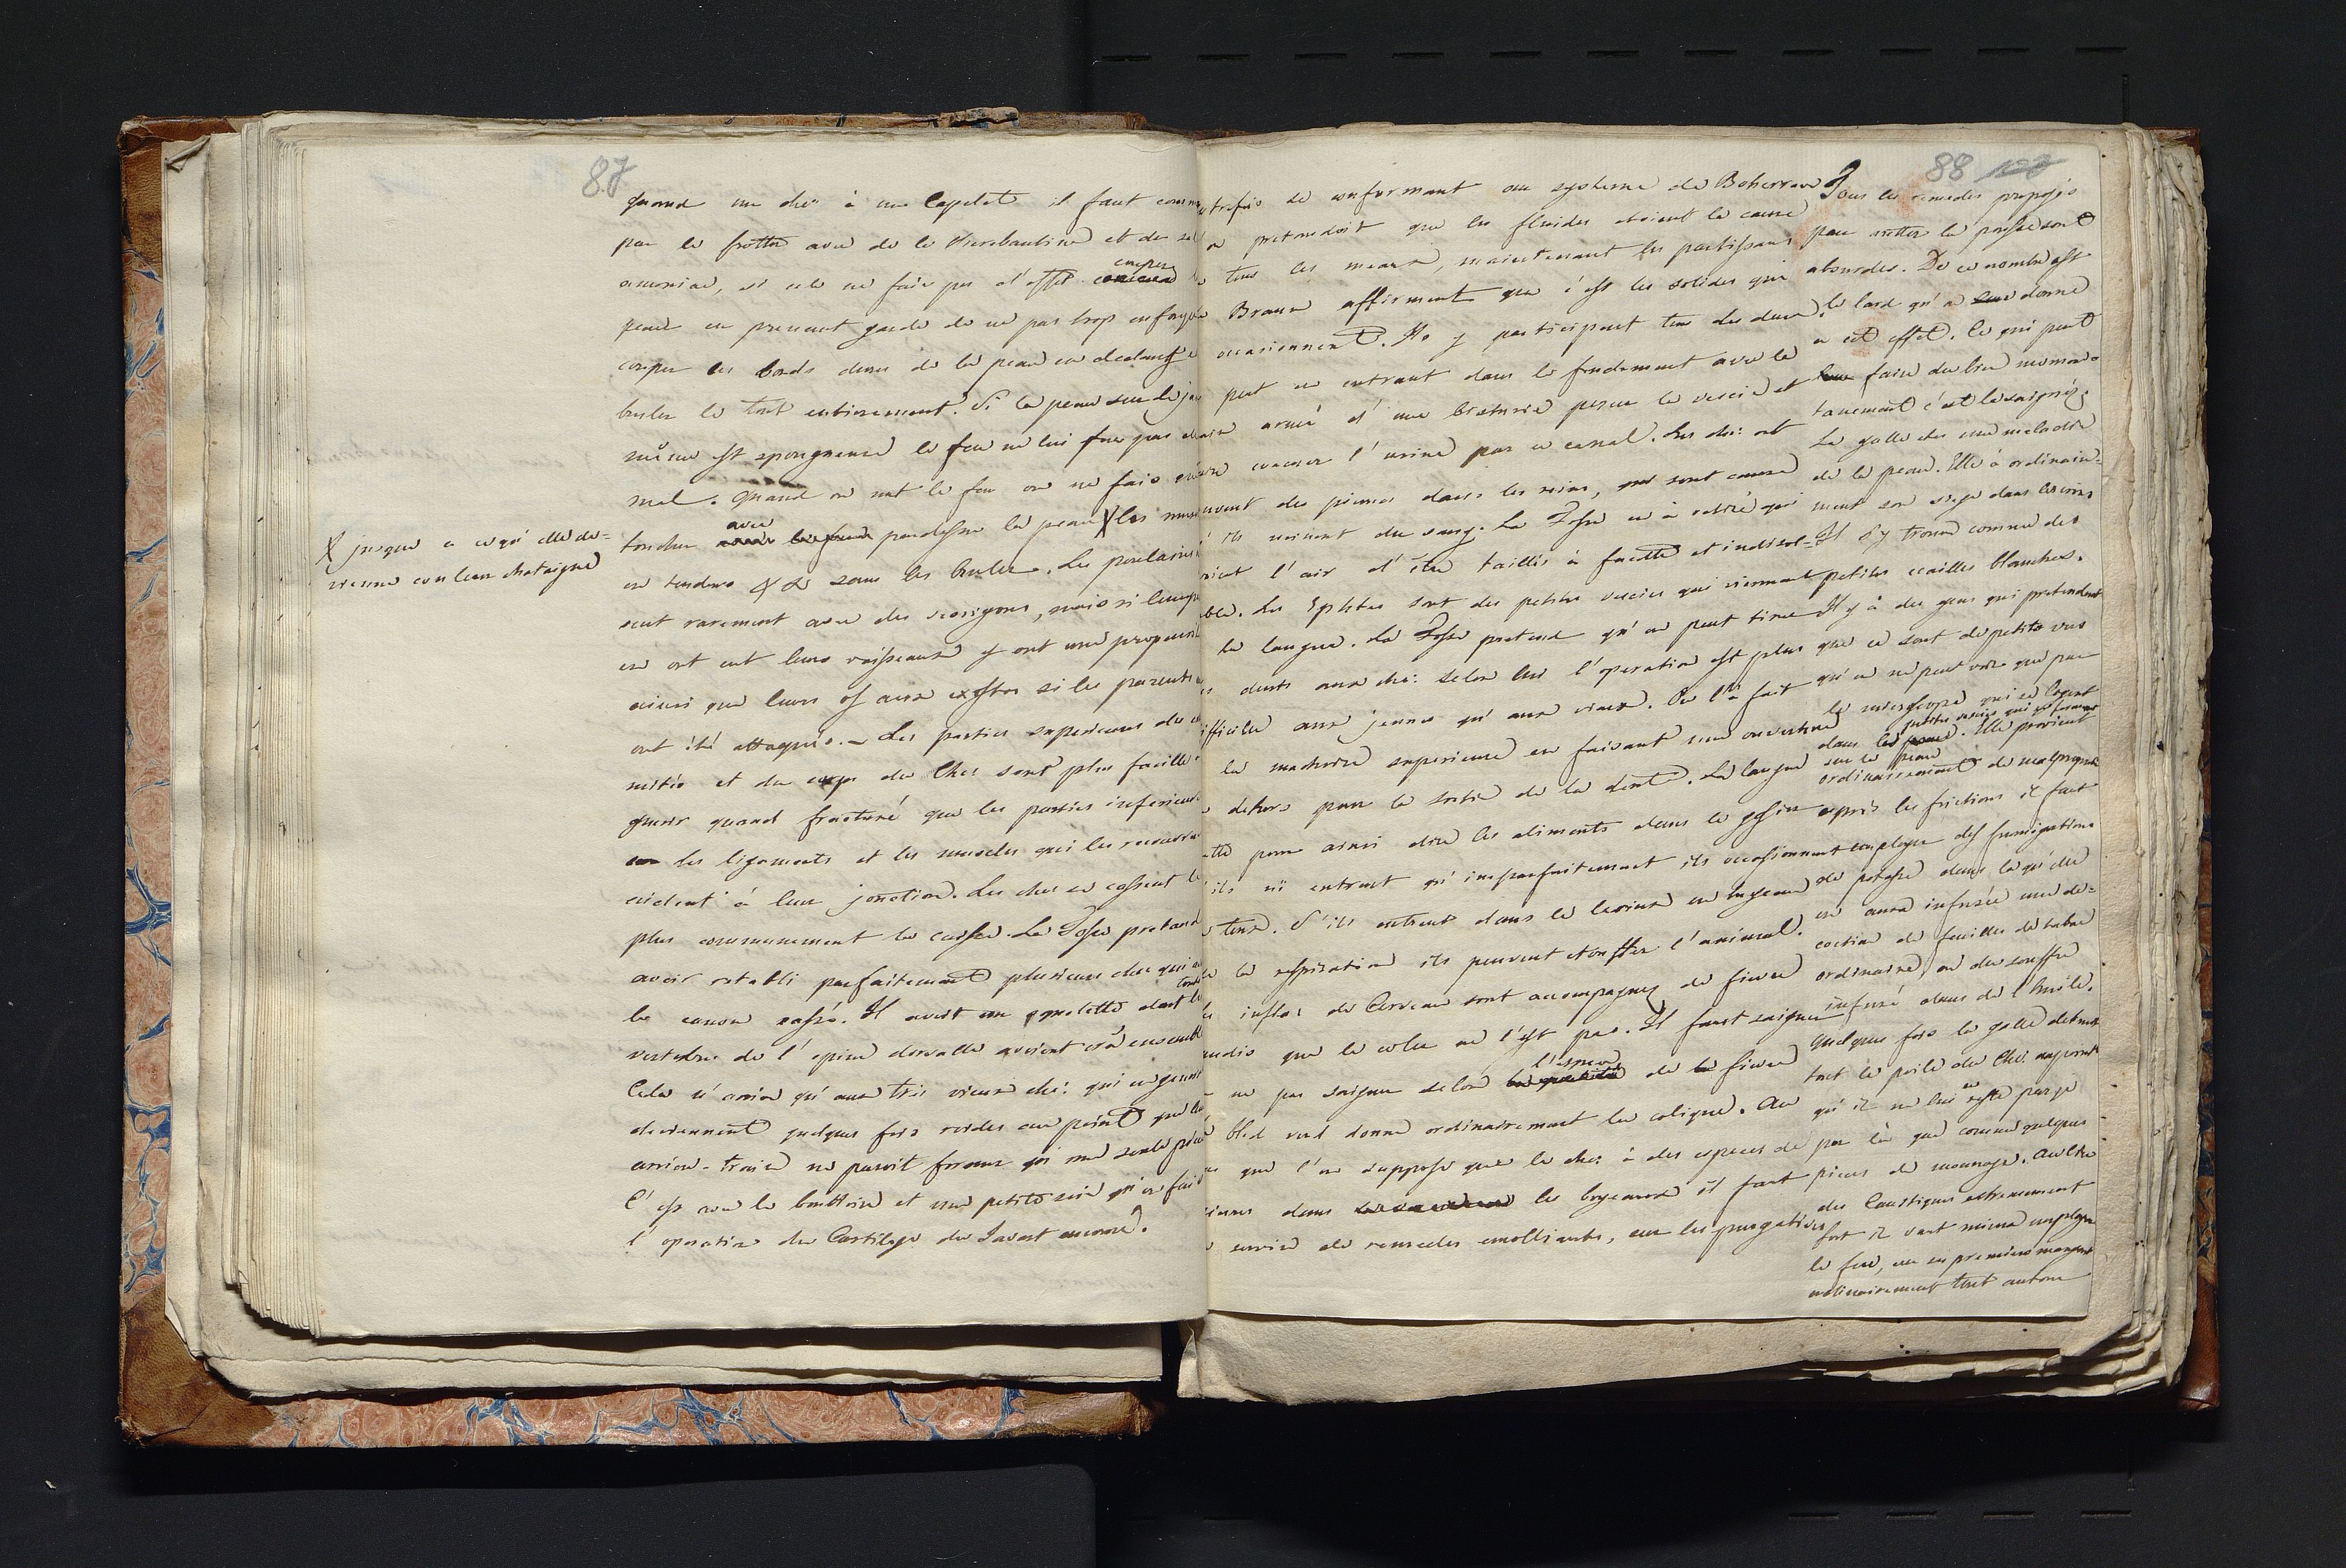 87
quand un che: à un Capelet il faut comm
par le frotter avec de la Therebantine et du sel
amoniac, si cela ne fais pas d'effet couper
peau en prenant garde de ne pas trop enfonc
couper les bords durs de la peau en dedans et
bruler le tout entierement. Si la peau sur le ja
même est spongneuse le feu ne lui fera pas de
mal. Quand on met le feu on ne fais qu'
toucher avec par dessus la peau X les mus
en tendre &c& sans les bruler. Les poulains
sont rarement avec des vessigons, mais si leurs p
en ont eut leurs vaisseaux y ont une propension
ainsi que leurs os aux exostos si les parents
ont été attaqués. – Les parties superieures des
mités et du corps du Chev sont plus facille a
guerir quand fracturé que les parties inferieures
les ligaments et les muscles qui les recouvre
aident à leur jonction. Les chev se cassent le
plus communement la cuisse. La Fosse pretend
avoir retabli parfaitement plusieurs chev qui a
le canon cassé. Il avoit un squelette dont toutes les
vertebres de l'epine dorsalle avoient crû ensemble
Cela n'arrive qu'aux trés vieux che: qui en general
deviennent quelques fois roides au point que leur
arriere-train ne paroit former qu'une seule pièce
C'est avec le bouttoir et une petite scie qu'on fait
l'operation du Cartilage du Javart encorné.
X jusque a ce qu'elle de-
vienne couleur chataigne
88
autrefois se conformant au systeme de Boherrave
on pretendoit que les fluides etoient la cause
de tous les meaux, maintenant les partissans
de Braun affirment que c'est les solides qui
occasionnent. Ils y participent tous les deux.
peut en entrant dans le fondement avec la
main armé d'une bistourie percer la vescie et
faire evacuer l'urine par ce canal. Les che: ont
souvent des pierres dans les reins, qui sont cause
qu'ils urinent du sang. La Fosse en à retiré qui
avoient l'air d'être taillés à facette et indissol-
uble. Les Ephtes sont des petites vescies qui viennent
à la langue. La Fosse pretend qu'on peut tirer
les dents aux che: selon lui l'operation est plus
difficile aux jeunes qu'aux vieux. On l'a fait
à la machoire superieure en faisant une ouverture
en dehors pour la sortie de la dent. La langue
jette pour ainsi dire les aliments dans le gosier
s'ils n'i entrent qu'imparfaitement ils occasionnent
la toux. S'ils entrent dans le larinx ou tuyeau
de la respiration ils peuvent etouffer l'animal.
Les inflas de Cerveau sont accompagnez de fievre
tandis que la colere ne l'est pas. Il faut saigner
ou ne pas saigner selon l'espece de fievre
Le bled verd donne ordinairement la colique. Au
cas que l'on suppose que le che: à des especes de
pierres dans les boyeaux il faut
se servir de remedes emollients, aux les purgatives
Tous les remedes proposés
pour arretter la pousse sont
absurdes. De ce nombre est
le lard qu'on donne
a cet effet. Ce qui peut
faire du bien momen-
tanement c'est la saigné.
La galle est une meladie
de la peau. Elle à ordinaire-
ment son siege dans les crins
Il s'y trouve comme des
petites ecailles blanches.
Il y à des gens qui pretendent
que ce sont des petits vers
qu'on ne peut voir que par
le microscope qui se logent
dans les petites vescies qui se forment
sur la peau. Elle provient
ordinairement de malpropreté
aprés les frictions il faut
employer des fumigations
de potasse dans la qu'elle
on aura infusée une de-
coction de feuilles de tabac
ordinaire, ou du souffre
infusé dans de l'huile.
Quelque fois la galle detruit
tout le poile du Che: au point
qu'il ne lui en reste par ci
par là que comme quelques
pieces de monnoye. Au lieu
des Caustiques extremement
fort il vaut mieux employer
le feu, car les premiers mangent
ordinairement tout autour